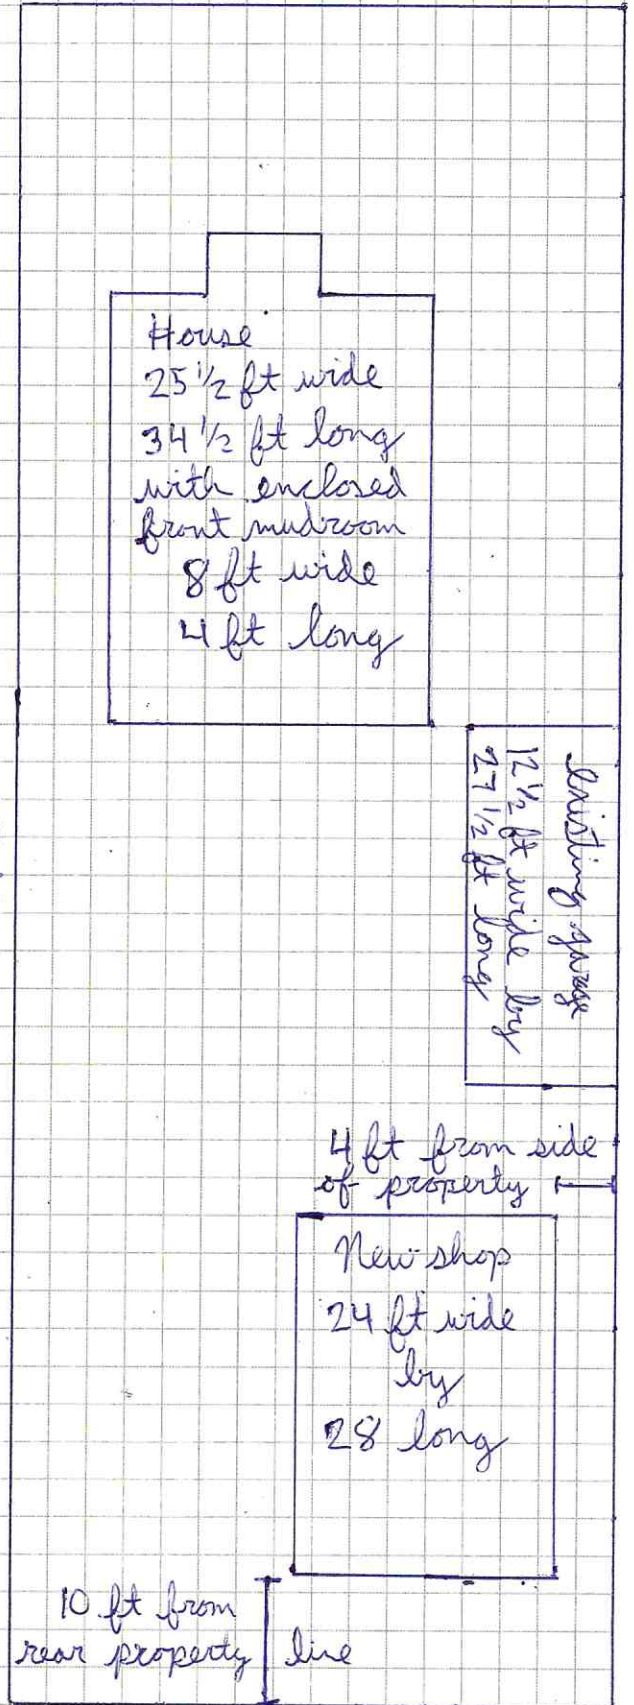 House
25 1/2 ft wide
34 1/2 ft long
with enclosed
front mudroom
8 ft wide
4 ft long
existing garage
12 1/2 ft wide by
27 1/2 ft long
4 ft from side
of property
New shop
24 ft wide
by
28 long
10 ft from
rear property line